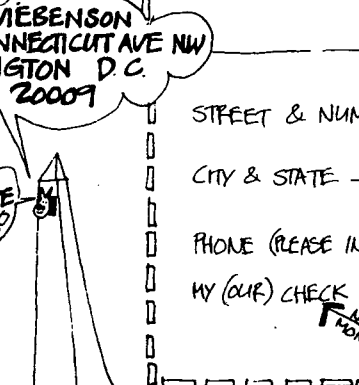 VIEBENSON
NNECTICUT AVE NW
GTON D.C.
20009
STREET & NUM
CITY & STATE -
PHONE (PLEASE IN
MY (OUR) CHECK